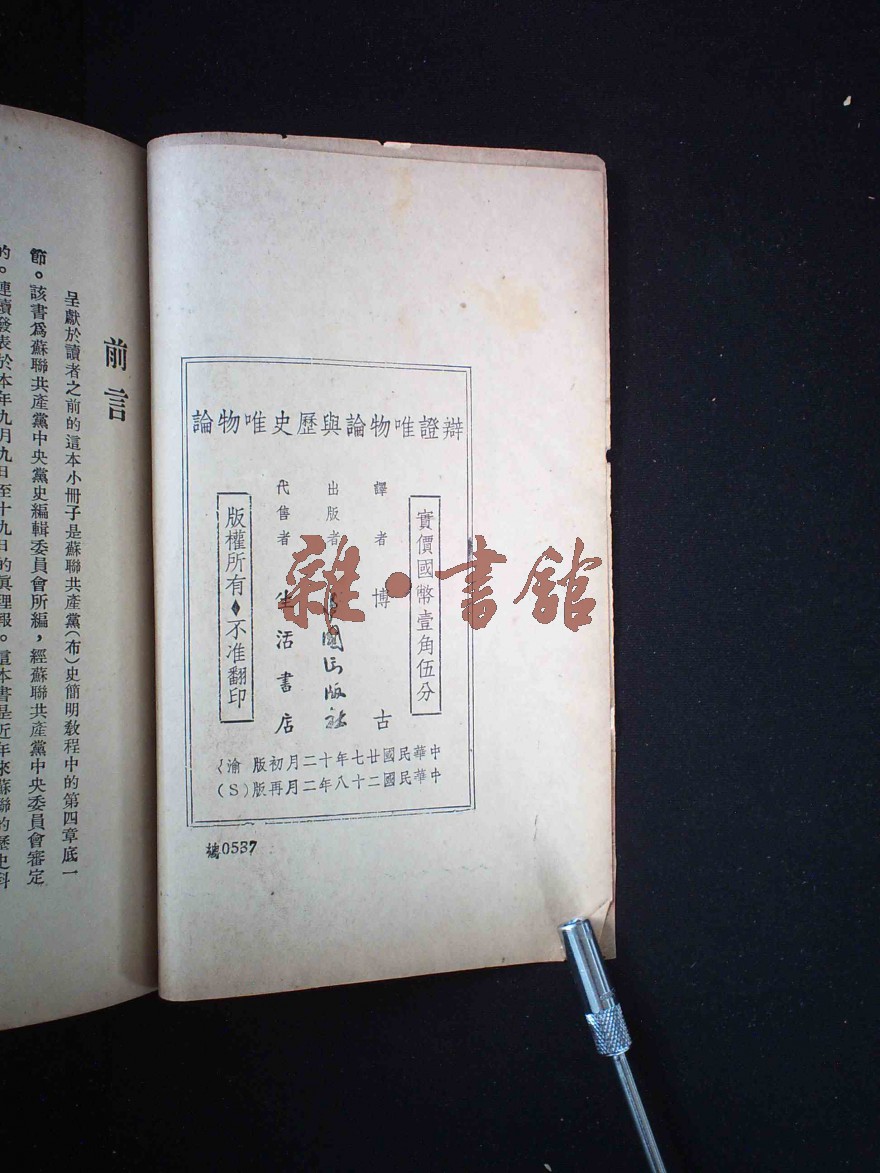 辯證唯物論與歷史唯物論
實價國幣壹角伍分
譯者 博古
出版者 國出版社
代售者 生活書店
版權所有♦不准翻印
中華民國廿七年十二月初版 渝
中華民國二十八年二月再版(S)
號0537
雜·書館
前言
呈獻於讀者之前的這本小冊子是蘇聯共產黨(布)史簡明教程中的第四章底一
節。該書爲蘇聯共產黨中央黨史編輯委員會所編,經蘇聯共產黨中央委員會審定
的。連續發表於本年九月九日至十九日的眞理報。這本書是近年來蘇聯的歷史科